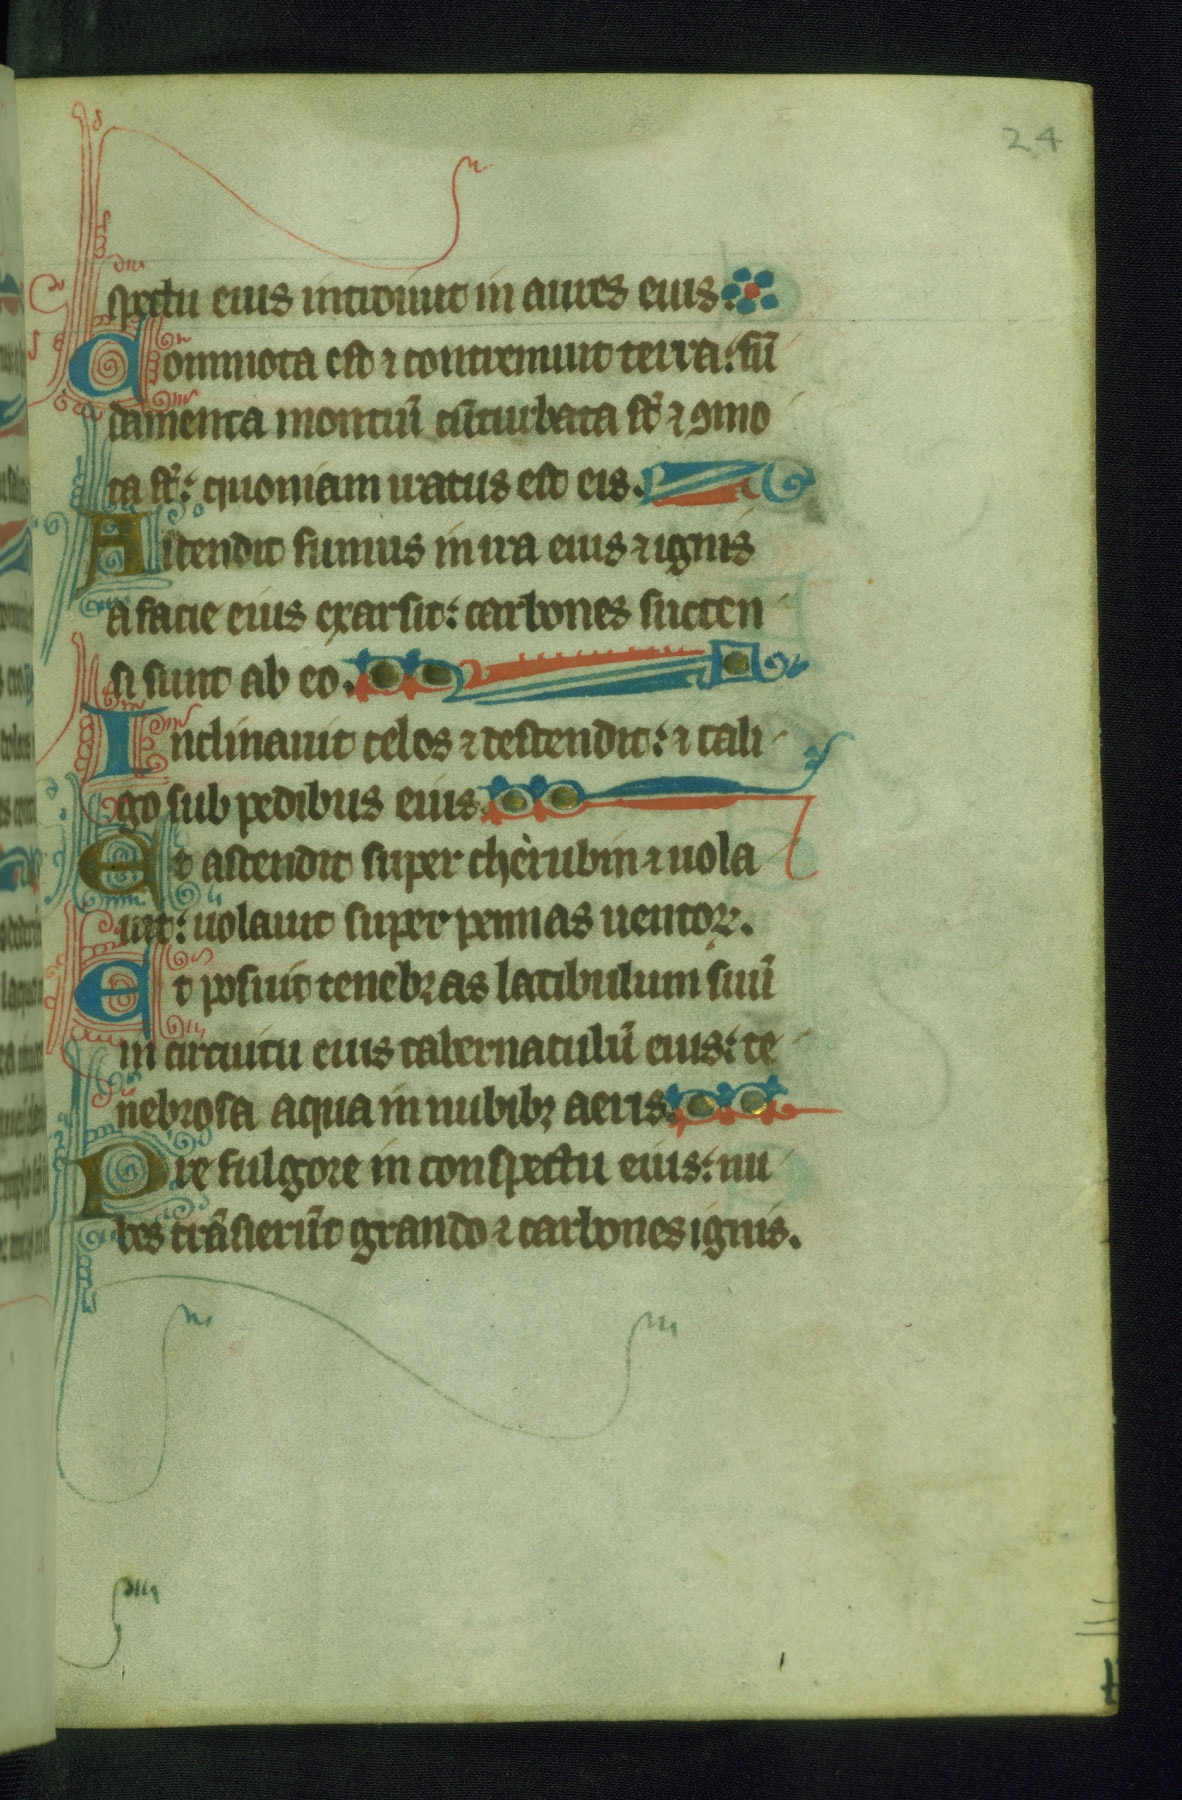 24
spectu eius introiuit in aures eius.
Commota est ⁊ contremuit terra: fū
damenta montiū cōturbata st̄ ⁊ ꝯmo
ta st̄: quoniam iratus est eis.
Ascendit fumus in ira eius ⁊ ignis
a facie eius exarsit: carbones succen
si sunt ab eo.
Inclinauit celos ⁊ descendit: ⁊ cali
go sub pedibus eius.
Et ascendit super cherubin ⁊ uola
uit: uolauit super pennas uentoꝝ.
Et posuit tenebras latibulum suū
in circuitu eius tabernaculū eius: te
nebrosa aqua in nubibꝫ aeris.
Pre fulgore in conspectu eius: nu
bes trāsierūt grando ⁊ carbones ignis.